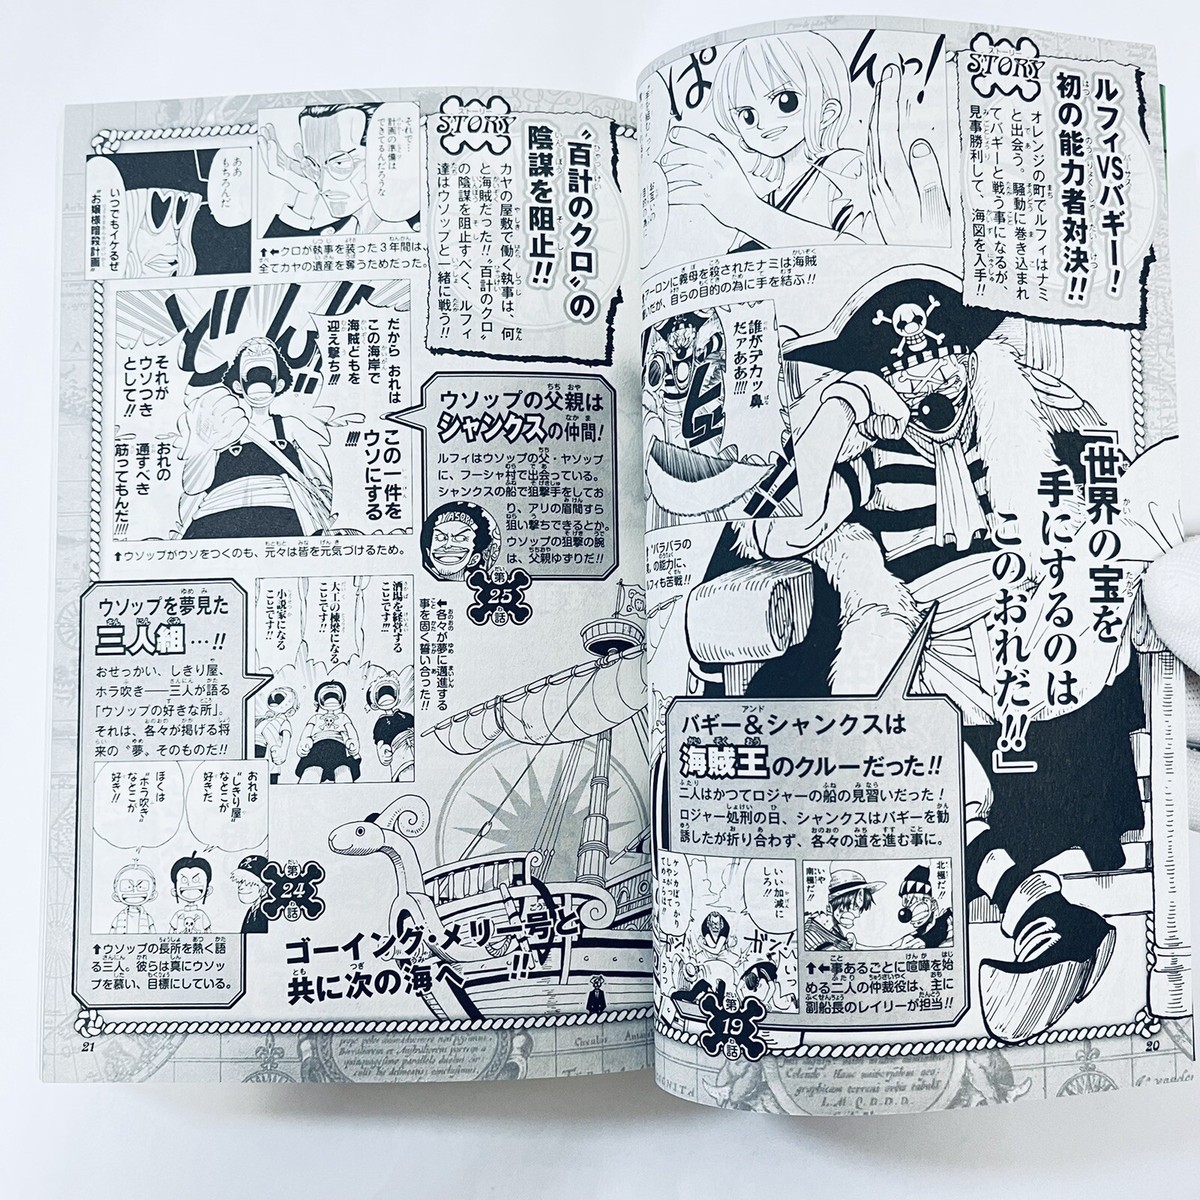 STORY
ルフィVSバギー！
初の能力者対決!!
オレンジの町でルフィはナミ
と出会う。騒動に巻き込まれ
てバギーと戦う事になるが、
見事勝利して、海図を入手!!
ぱ
んっ!
アーロンに義母を殺されたナミは海賊
自らの目的の為に手を結ぶ!!
誰がデカッ鼻
だァああ!!!!
「世界の宝を
手にするのは
このおれだ!!!」
バギー&シャンクスは
海賊王のクルーだった!!
二人はかつてロジャーの船の見習いだった！
ロジャー処刑の日、シャンクスはバギーを勧
誘したが折り合わず、各々の道を進む事に。
北極だ!!
いや
南極だ!!
いい加減に
しろ!
ガン!
第19話
↑←事あるごとに喧嘩を始
める二人の仲裁役は、主に
副船長のレイリーが担当!!
20
STORY
“百計のクロ”の
陰謀を阻止!!
カヤの屋敷で働く執事は、何
と海賊だった!!“百計のクロ”
の陰謀を阻止すべく、ルフィ
達はウソップと一緒に戦う!!
それで…
計画の準備は
できてるんだろうな
ああ
もちろんだ
いつでもイケるぜ
“お嬢様暗殺計画”
↑←クロが執事を装った3年間は、
全てカヤの遺産を奪うためだった。
だから おれは
この海岸で
海賊どもを
迎え撃ち!!!
この一件を
ウソにする
!!!!
それが
ウソつき
として!!
おれの
通すべき
筋ってもんだ!!!!
↑ウソップがウソをつくのも、元々は皆を元気づけるため。
ウソップの父親は
シャンクスの仲間!
ルフィはウソップの父・ヤソップ
に、フーシャ村で出会っている。
シャンクスの船で狙撃手をしてお
り、アリの眉間すら
狙い撃ちできるとか。
ウソップの狙撃の腕
は、父親ゆずりだ!!
YASOPP
第25話
ウソップを夢見た
三人組…!!
おせっかい、しきり屋、
ホラ吹き――三人が語る
「ウソップの好きな所」。
それは、各々が掲げる将
来の“夢”そのものだ!!
酒場を経営する
ことです!!
大工の棟梁になる
ことです!!
小説家になる
ことです!!
←各々が夢に邁進する
事を固く誓い合った!!
おれは
“しきり屋”
なとこが
好きだ
ぼくは
“ホラ吹き”
なとこが
好き!!
第24話
↑ウソップの長所を熱く語
る三人。彼らは真にウソッ
プを慕い、目標にしている。
ゴーイング・メリー号と
共に次の海へ!!
21